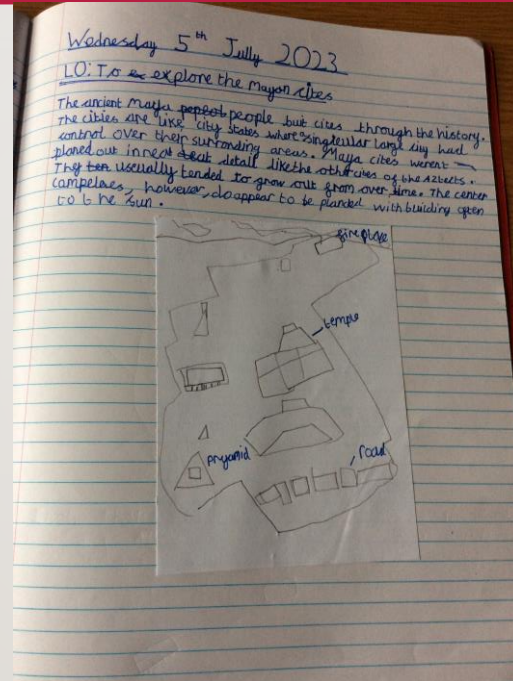 Wednesday 5th Jully 2023
LO: To explore the Mayan cites
The ancient Maya people but cites through the history.
The cities are like city states where singleular large city had
control over their surronding areas. Maya cites werent
planed out in neat detail like the other cites of the Azterts.
They useually tended to grow out from over time. The center
campelexes, however, do appear to be planded with building often
to the sun.
fire place
temple
pryamid
road